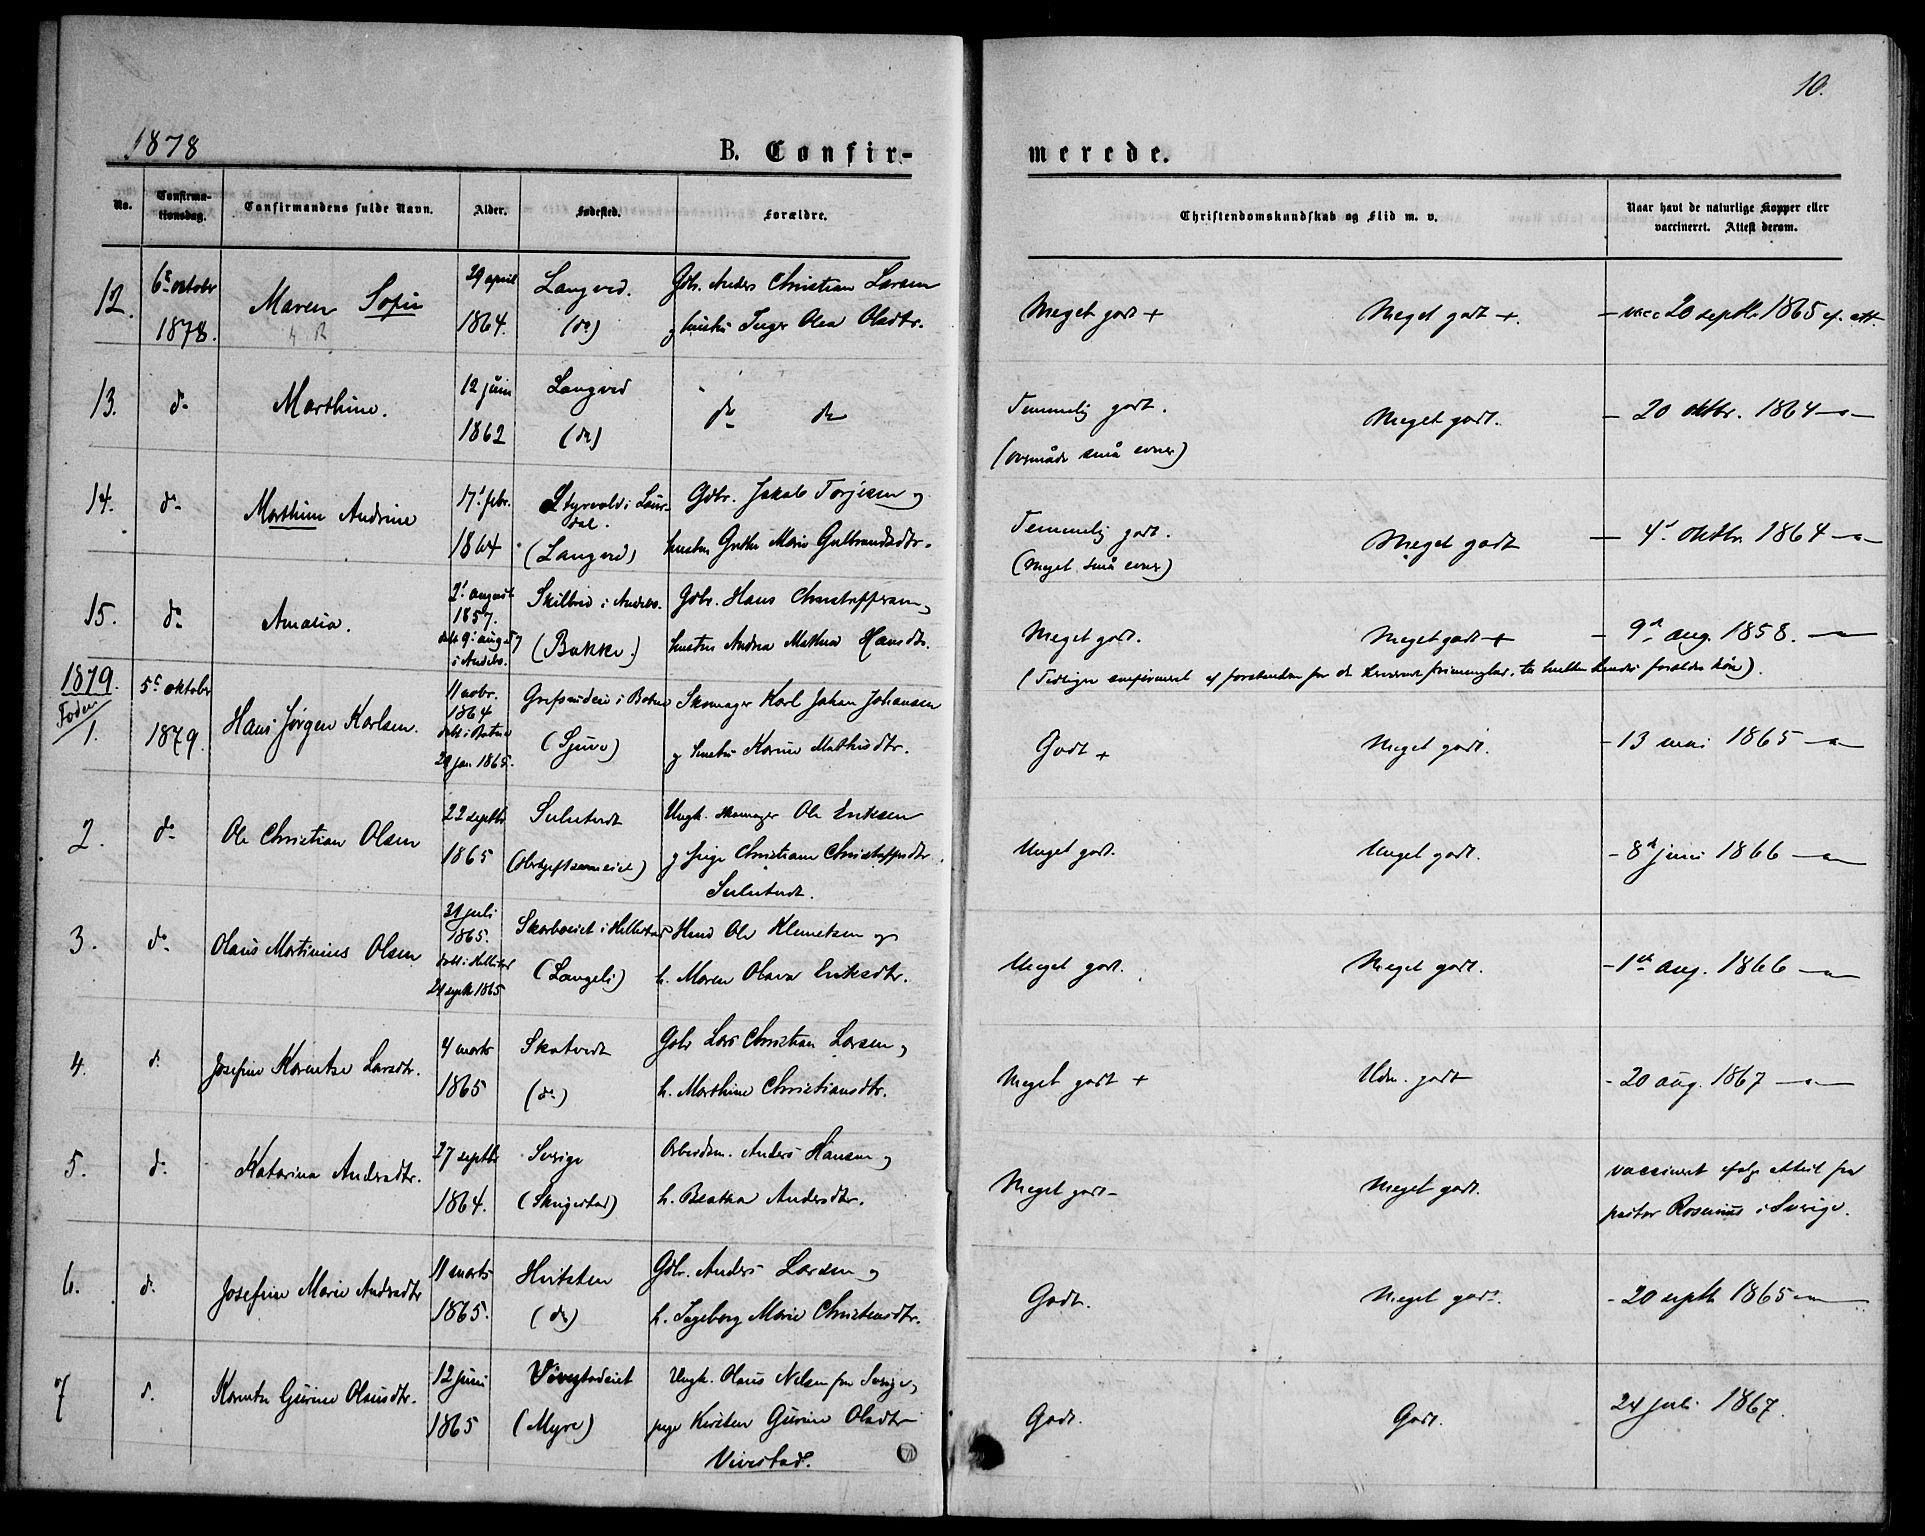 10.
1878
B. Confirmerede.
No.
Confirmationsdag.
Confirmandens fulde Navn.
Alder.
Fødested.
Forældre.
Christendomskundskab og Flid m. v.
Naar havt de naturlige Kopper eller vaccineret. Attest derom.
12. 6te oktobr Maren Sofie 29 april Langved. Gbr. Anders Christian Larsen Meget godt + Meget godt +. – vacc 20 septbr 1865 ef. att.
1878. 1864. (do) og hustru Inger Olea Olsdtr.
13. do Marthine. 12 juni Langved do do Temmelig godt. Meget godt. – 20 oktbr. 1864 –"–
1862 (do) (overmåde små evner)
14. do Marthine Andrine 17. febr. Styrvold i Laurdal. Gbr. Jakob Torjesen og Temmelig godt. Meget godt – 4. oktbr. 1864 –"–
1864 (Langved) hustru Grethe Marie Gulbrandsdtr. (Meget små evner)
15. do Amalia. 2. august Skilbred i Andebo. Gbr. Hans Christoffersen og Meget godt. Meget godt + – 9de aug. 1858. –"–
1857. døbt 9. aug 57 i Andebo. (Bakke.) hustru Andrea Mathea Hansdtr.
1879.
1. 5te oktober Hans Jørgen Karlsen. 11 novbr. i Botne Skomager Karl Johan Johansen Godt + Meget godt. – 13 mai 1865 –"–
1879. 1864 døbt i Botne 29 jan. 1865. (Sjuve) og hustru Karine Mathisdtr.
2. do Ole Christian Olsen 22 septbr Sulutvedt Ungk. skomager Ole Eriksen Meget godt. Meget godt. – 8de juni 1866 –"–
1865 og pige Christiane Christoffersdtr.
Sulutvedt.
3. do Olaus Martinius Olsen 31 juli Skarboeiet i Ole Klemetsen og Meget godt. Meget godt. – 1ste aug. 1866 –"–
1865. døbt i 24 septbr 1865 (Langeli) h. Maren Olava Eriksdtr.
4. do Josefine Karentse Larsdtr. 4 marts Skatvedt Gbr Lars Christian Larsen og Meget godt + Udm. godt – 20 aug. 1867 –"–
1865 (do) h. Marthine Christiansdtr.
5. do Katarina Andersdtr. 27 septbr Sverige Arbeidsm. Anders Hansen og Meget godt – Meget godt. vaccineret ifølge attest fra
1864. h. Beatha Andersdtr. pastor Rosenius i Sverige.
6. do Josefine Marie Andersdtr 11 marts Hvitsten Gbr. Anders Larsen og Godt. Meget godt. – 20 septbr 1865 –"–
1865. (do) h. Ingeborg Marie Christensdtr.
7 do Karentse Gurine Olausdtr. 12 juni Vivestadeiet Ungk. Olaus Nilsen fra Sverige og Godt. Godt. 24 juli 1867.
1865 (Myre) pige Kirsten Gurine Olsdtr
Vivestad.